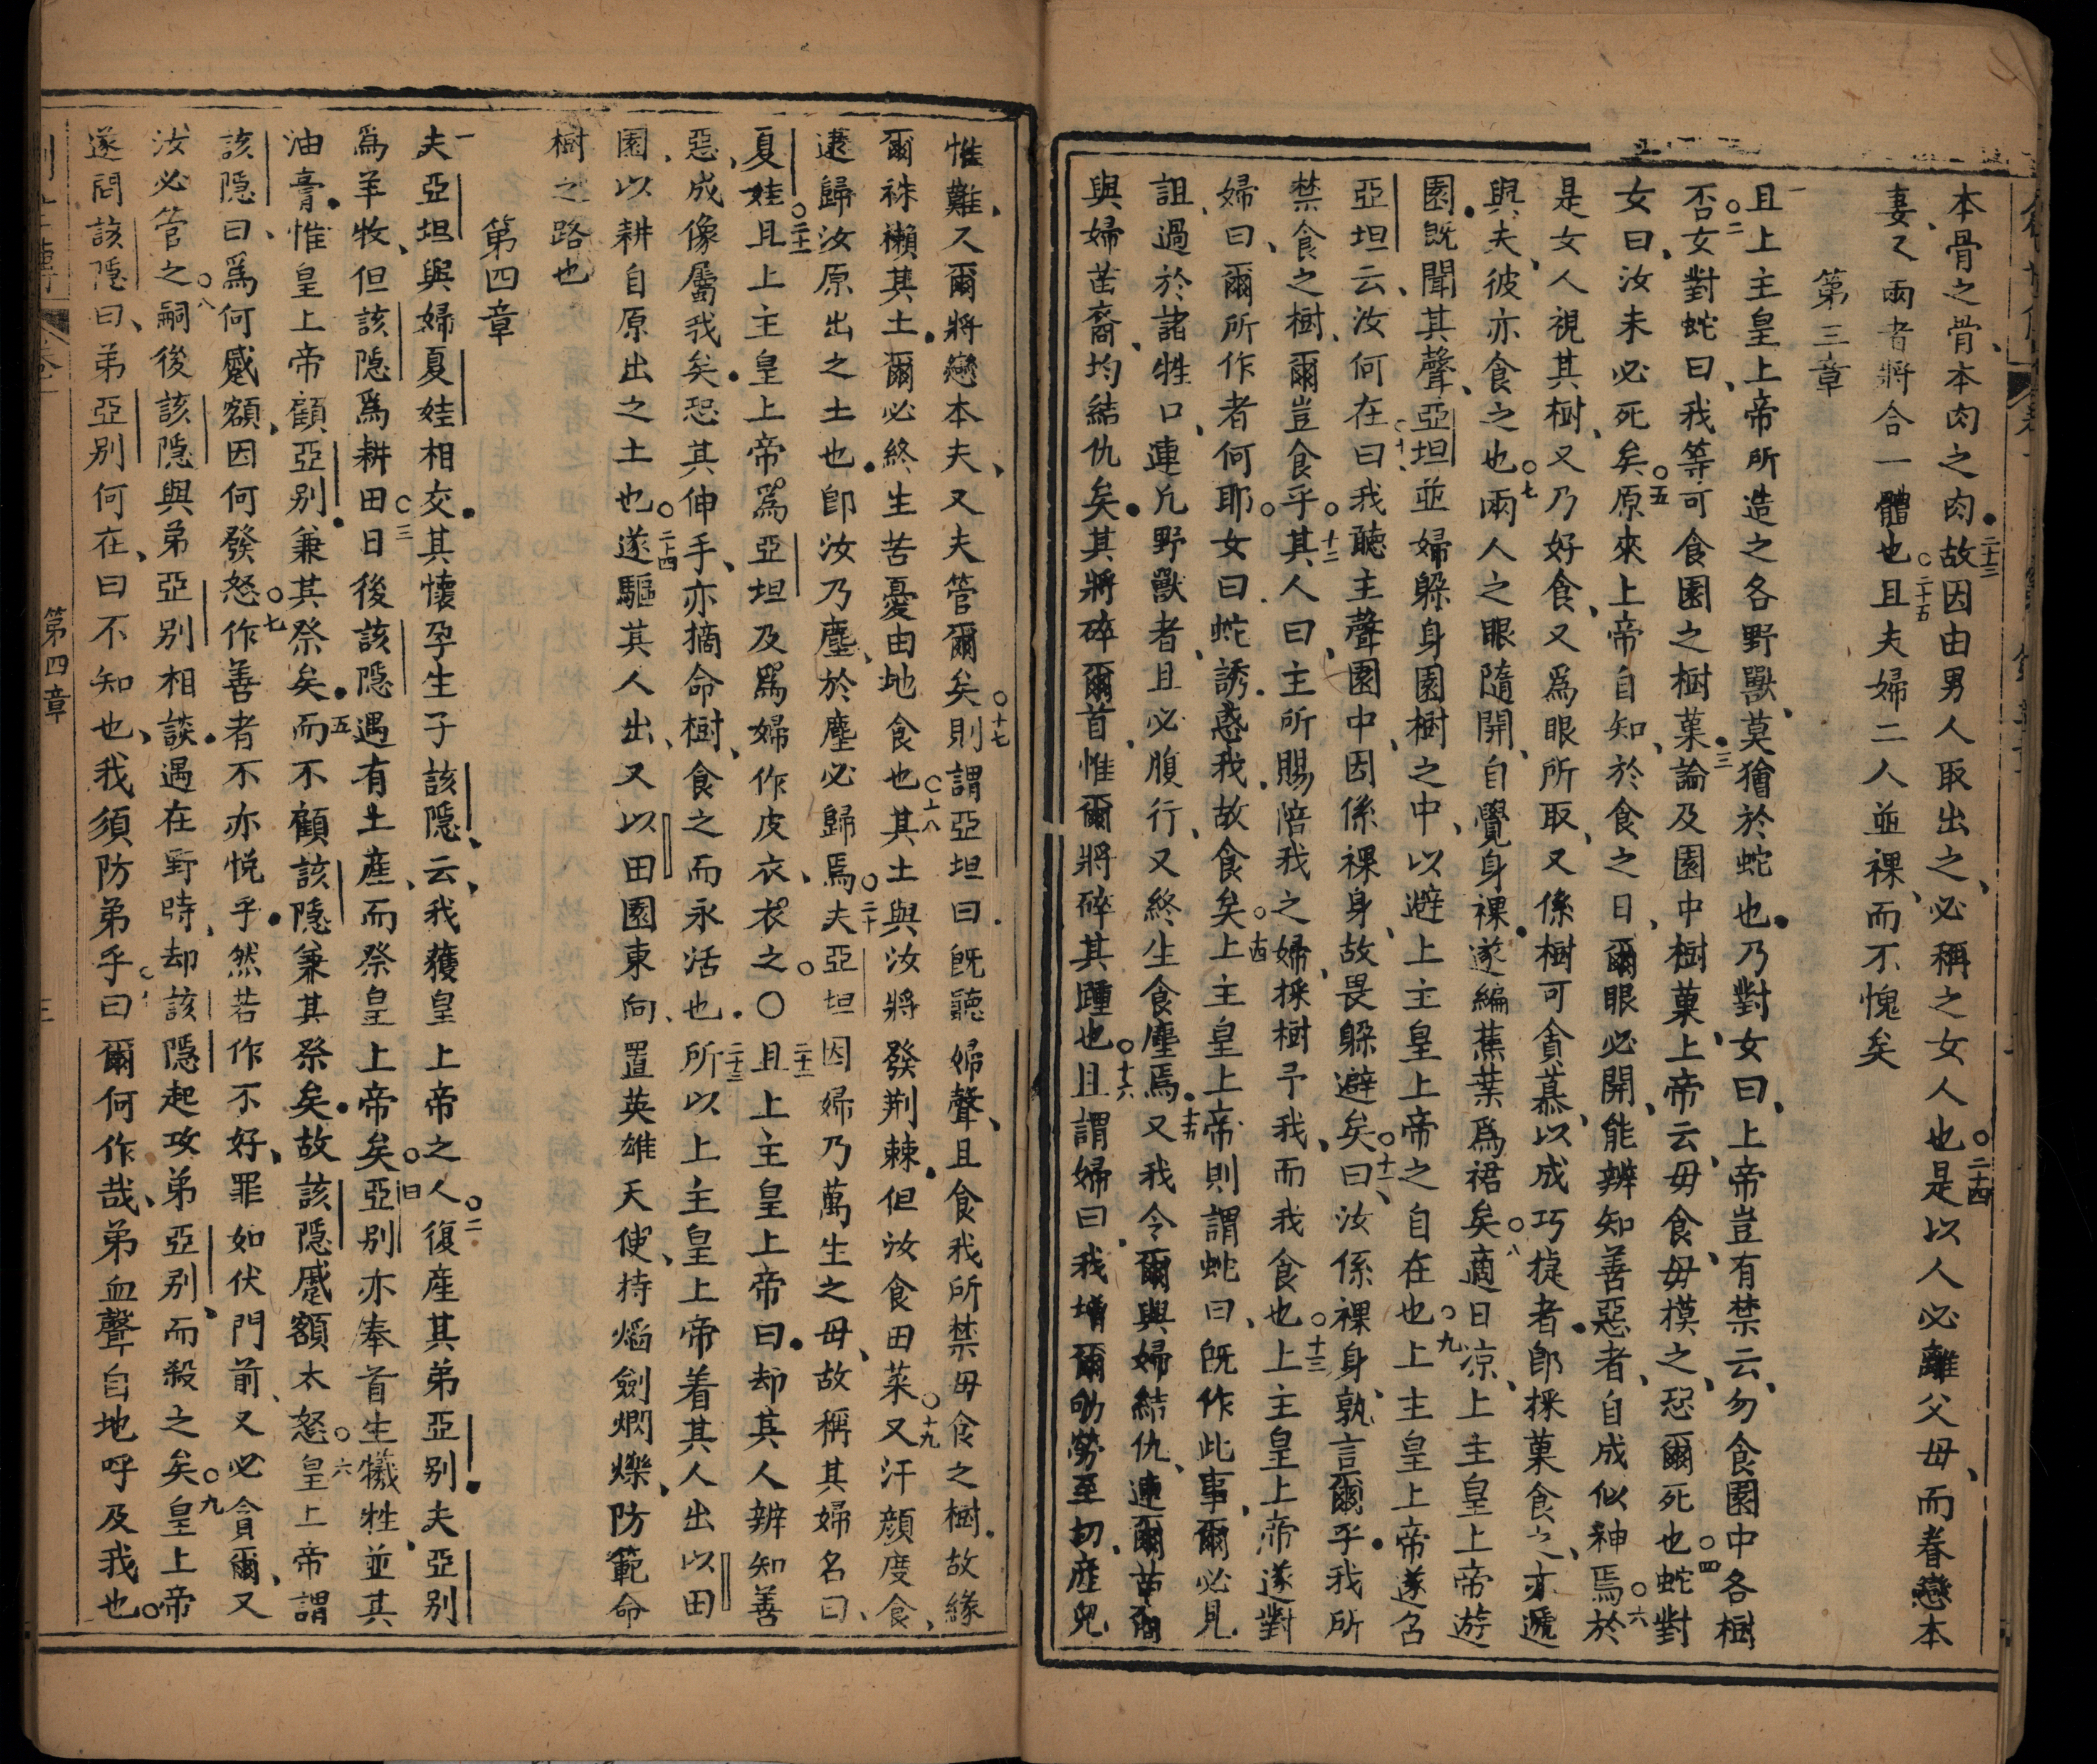 本骨之骨、本肉之肉●二十三故因由男人取出之、必稱之女人也○二十四是以人必離父毋、而眷戀本
妻、又兩者將合一體也○二十五且夫婦二人並裸、而不愧矣
第三章
一且上主皇上帝所造之各野獸、莫獪於蛇也●乃對女曰、上帝豈有禁云、勿食園中各樹
否○二女對蛇曰、我等可食園之樹菓●三論及園中樹菓、上帝云、毋食、毋摸之、恐爾死也○四蛇對
女曰、汝未必死矣○五原來上帝自知、於食之日、爾眼必開、能辨知善惡者、自成似神焉○六於
是女人視其樹、又乃好食、又爲眼所取、又係樹可貪慕、以成巧㨗者●卽採菓食之、亦遞
與夫、彼亦食之也○七兩人之眼隨開、自覺身裸●遂編蕉葉爲裙矣○八適日凉、上主皇上帝遊
園●旣聞其聲、亞坦並婦躲身園樹之中、以避上主皇上帝之自在也○九上主皇上帝遂召
亞坦云、汝何在○十曰我聽主聲園中、因係裸身、故畏躲避矣○十一曰汝係裸身、孰言爾乎●我所
禁食之樹、爾豈食乎○十二其人曰、主所賜陪我之婦、採樹予我、而我食也○十三上主皇上帝遂對
婦曰、爾所作者何耶○女曰蛇誘惑我、故食矣○十四上主皇上帝則謂蛇曰、旣作此事、爾必見
詛、過於諸牲口、連凢野獸者、且必腹行、又終生食塵焉●十五又我令爾與婦結仇、連爾苗裔
與婦苗裔、均結仇矣●其將碎爾首、惟爾將碎其踵也○十六且謂婦曰、我增爾劬勞至切、産兒
惟難、又爾將戀本夫、又夫管爾矣○十七則謂亞坦曰●旣聽婦聲、且食我所禁毋食之樹●故緣
爾祩獺其土●爾必終生苦憂由地食也○十八其土與汝將發荆棘●但汝食田菜○十九又汗顔度食、
遝歸汝原出之土也●卽汝乃塵、於塵必歸焉○二十夫亞坦因婦乃萬生之毋、故稱其婦名曰、
夏娃○二十一且上主皇上帝爲亞坦及爲婦作皮衣、衣之○〇二十二且上主皇上帝曰●却其人辨知善
惡、成像屬我矣●恐其伸手、亦摘命樹、食之而永活也●二十三所以上主皇上帝着其人出以田
園、以耕自原出之土也○二十四遂驅其人出、又以田園東向、置英雄天使、持熖劍烱爍、防範命
樹之路也
第四章
一夫亞坦與婦夏娃相交●其懷孕生子該隱、云、我獲皇上帝之人○二復産其弟亞別●夫亞別
爲羊牧、但該隱爲耕田○三日後該隱遇有土産、而祭皇上帝矣○四亞別亦奉首生犧牲、並其
油膏●惟皇上帝顧亞別●兼其祭矣●五而不顧該隱兼其祭矣●故該隱慼額太怒○六皇上帝謂
該隱曰、爲何慼額、因何發怒○七作善者不亦悅乎●然若作不好、罪如伏門前、又必貪爾、又
汝必管之○八嗣後該隱與弟亞別相談●遇在野時、却該隱起攻弟亞別、而殺之矣○九皇上帝
遂問該隱曰、弟亞別何在、曰不知也、我須防弟乎○十曰爾何作哉、弟血聲自地呼及我也○
第四章